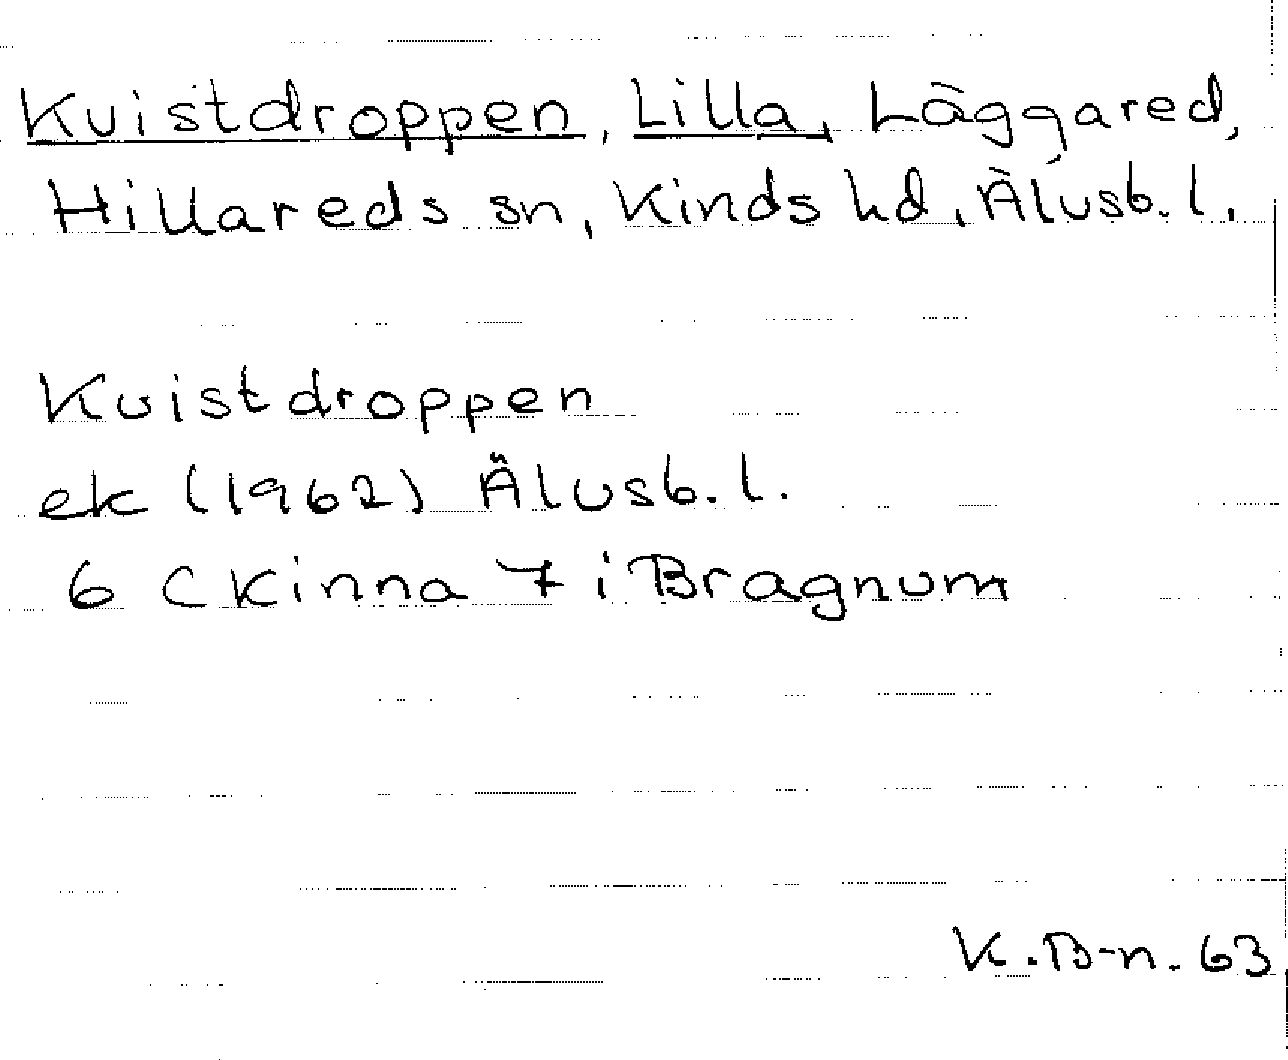 Kvistdroppen, Lilla, Läggared,
Hillareds sn, Kinds hd, Älvsb. l.
Kvistdroppen
ek (1962) Älvsb. l.
6 C Kinna 7 i Bragnum
K. B-n. 63